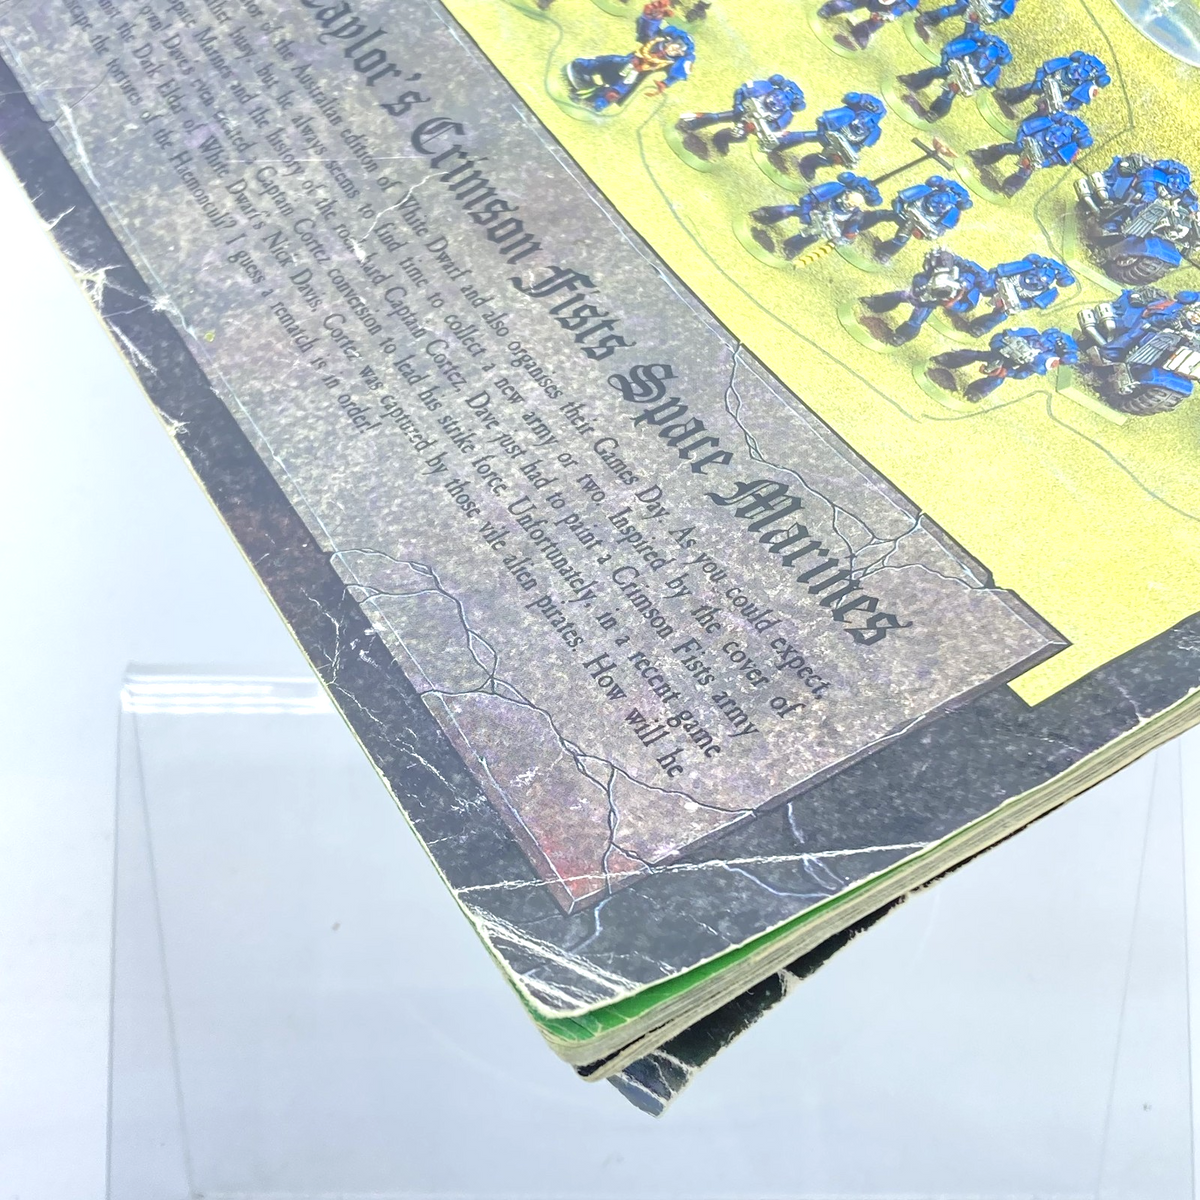 Taylor's Crimson Fists Space Marines
of the Australian edition of White Dwarf and also organises their Games Day. As you could expect,
busy, but he always seems to find time to collect a new army or two. Inspired by the cover of
Space Marines and the history of the rock hard Captain Cortez, Dave just had to paint a Crimson Fists army
Dave even created a Captain Cortez conversion to lead his strike force. Unfortunately, in a recent game
the Dark Eldar of White Dwarf's Nick Davis, Cortez was captured by those vile alien pirates. How will he
escape the tortures of the Haemonculi? I guess a rematch is in order!